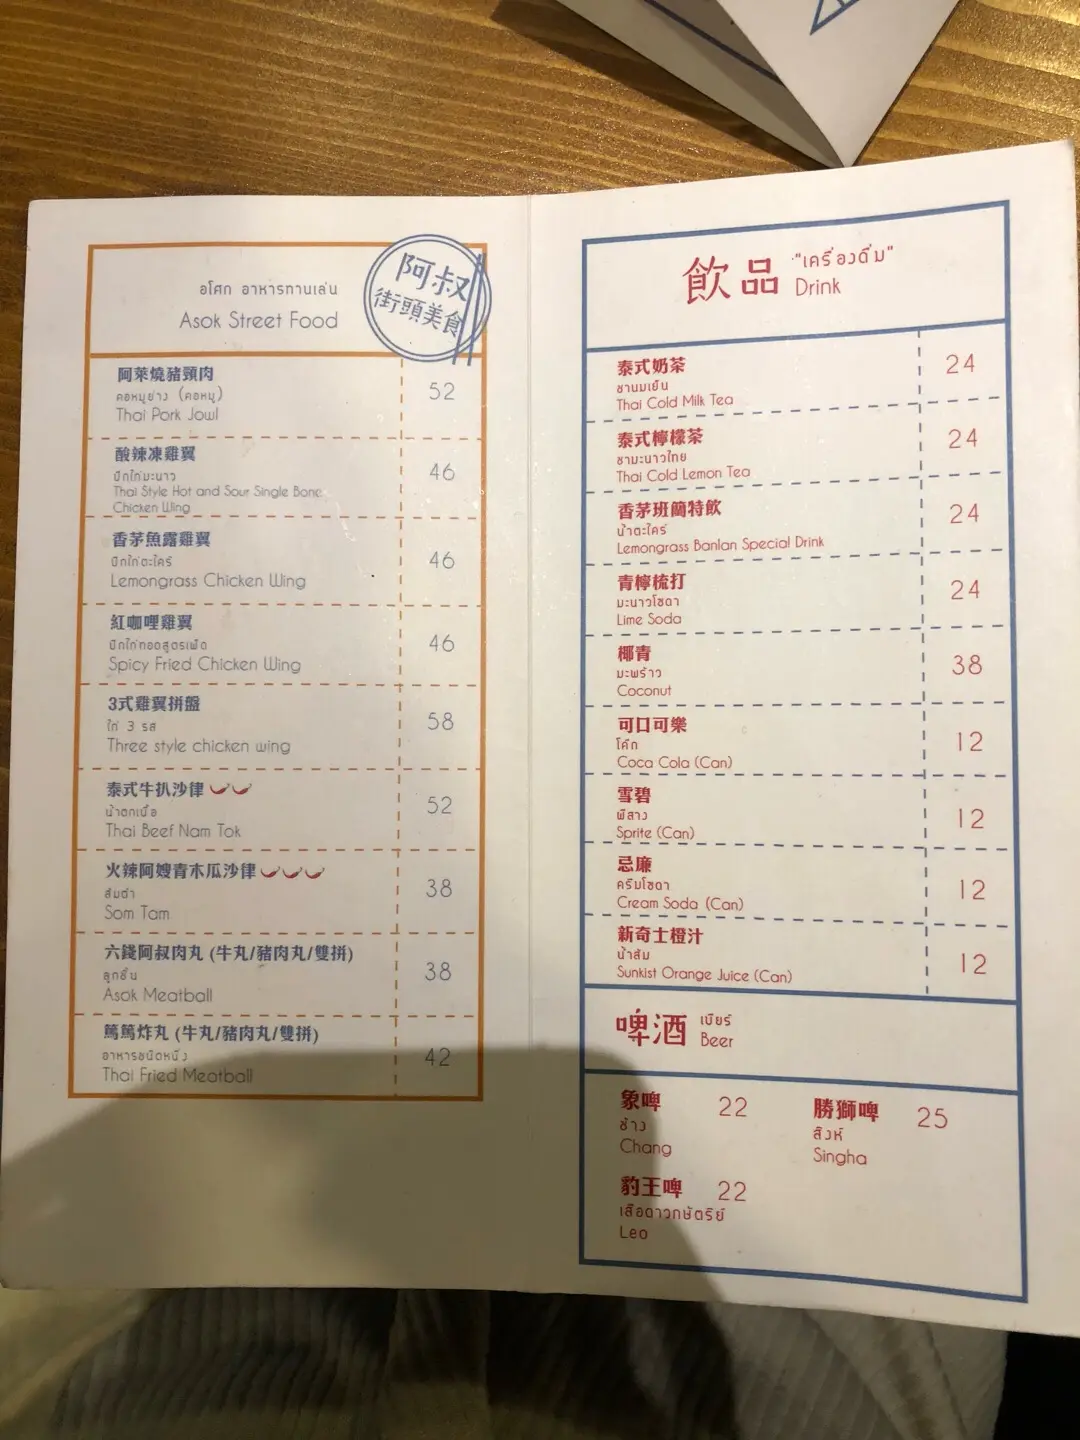 อโศก อาหารทานเล่น
Asok Street Food
阿叔
街頭美食
阿萊燒豬頸肉
คอหมูย่าง (คอหมู)
Thai Pork Jowl
52
酸辣凍雞翼
ปีกไก่มะนาว
Thai Style Hot and Sour Single Bone
Chicken Wing
46
香茅魚露雞翼
ปีกไก่ตะไคร้
Lemongrass Chicken Wing
46
紅咖喱雞翼
ปีกไก่ทอดสูตรเผ็ด
Spicy Fried Chicken Wing
46
3式雞翼拼盤
ไก่ 3 รส
Three style chicken wing
58
泰式牛扒沙律
น้ำตกเนื้อ
Thai Beef Nam Tok
52
火辣阿嫂青木瓜沙律
ส้มตำ
Som Tam
38
六錢阿叔肉丸 (牛丸/豬肉丸/雙拼)
ลูกชิ้น
Asok Meatball
38
篤篤炸丸 (牛丸/豬肉丸/雙拼)
อาหารชนิดหนึ่ง
Thai Fried Meatball
42
飲品 "เครื่องดื่ม"
Drink
泰式奶茶
ชานมเย็น
Thai Cold Milk Tea
24
泰式檸檬茶
ชามะนาวไทย
Thai Cold Lemon Tea
24
香茅班蘭特飲
น้ำตะไคร้
Lemongrass Banlan Special Drink
24
青檸梳打
มะนาวโซดา
Lime Soda
24
椰青
มะพร้าว
Coconut
38
可口可樂
โค๊ก
Coca Cola (Can)
12
雪碧
ผีสาง
Sprite (Can)
12
忌廉
ครีมโซดา
Cream Soda (Can)
12
新奇士橙汁
น้ำส้ม
Sunkist Orange Juice (Can)
12
啤酒 เบียร์
Beer
象啤 22
ช้าง
Chang
勝獅啤 25
สิงห์
Singha
豹王啤 22
เสือดาวกษัตริย์
Leo